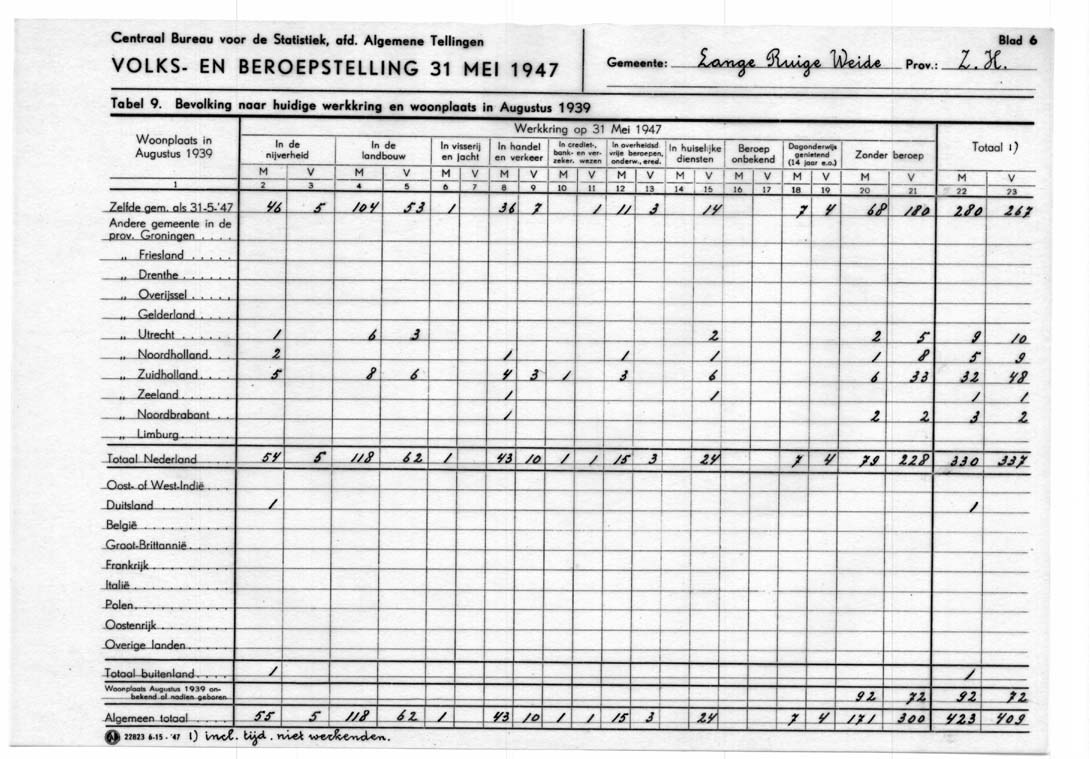 Centraal Bureau voor de Statistiek, afd. Algemene Tellingen
VOLKS- EN BEROEPSTELLING 31 MEI 1947
Gemeente: Lange Ruige Weide Prov.: Z.H.
Blad 6
Tabel 9. Bevolking naar huidige werkkring en woonplaats in Augustus 1939
Woonplaats in Augustus 1939
Werkkring op 31 Mei 1947
In de nijverheid
In de landbouw
In visserij en jacht
In handel en verkeer
In crediet-, bank- en verzeker. wezen
In overheidsd. vrije beroepen, onderw., ered.
In huiselijke diensten
Beroep onbekend
Dagonderwijs genietend (14 jaar e.o.)
Zonder beroep
Totaal 1)
M V M V M V M V M V M V M V M V M V M V M V
1 2 3 4 5 6 7 8 9 10 11 12 13 14 15 16 17 18 19 20 21 22 23
Zelfde gem. als 31-5-'47 46 5 104 53 1 36 7 1 11 3 14 7 4 68 180 280 267
Andere gemeente in de
prov. Groningen . . . .
„ Friesland . . . . .
„ Drenthe . . . . . .
„ Overijssel . . . . .
„ Gelderland . . . .
„ Utrecht . . . . . . 1 6 3 2 2 5 9 10
„ Noordholland. . . 2 1 1 1 1 8 5 9
„ Zuidholland. . . . 5 8 6 4 3 1 3 6 6 33 32 48
„ Zeeland. . . . . . 1 1 1 1
„ Noordbrabant . . 1 2 2 3 2
„ Limburg. . . . . .
Totaal Nederland . . . . 54 5 118 62 1 43 10 1 1 15 3 24 7 4 79 228 330 337
Oost- of West-Indië . . .
Duitsland . . . . . . . . 1 1
België . . . . . . . . .
Groot-Brittannië. . . . .
Frankrijk . . . . . . . .
Italië . . . . . . . . .
Polen. . . . . . . . . .
Oostenrijk . . . . . . .
Overige landen. . . . . .
Totaal buitenland. . . . 1 1
Woonplaats Augustus 1939 on-
bekend of nadien geboren 92 72 92 72
Algemeen totaal . . . . 55 5 118 62 1 43 10 1 1 15 3 24 7 4 171 300 423 409
22823 6-15 - '47 1) incl. tijd. niet werkenden.